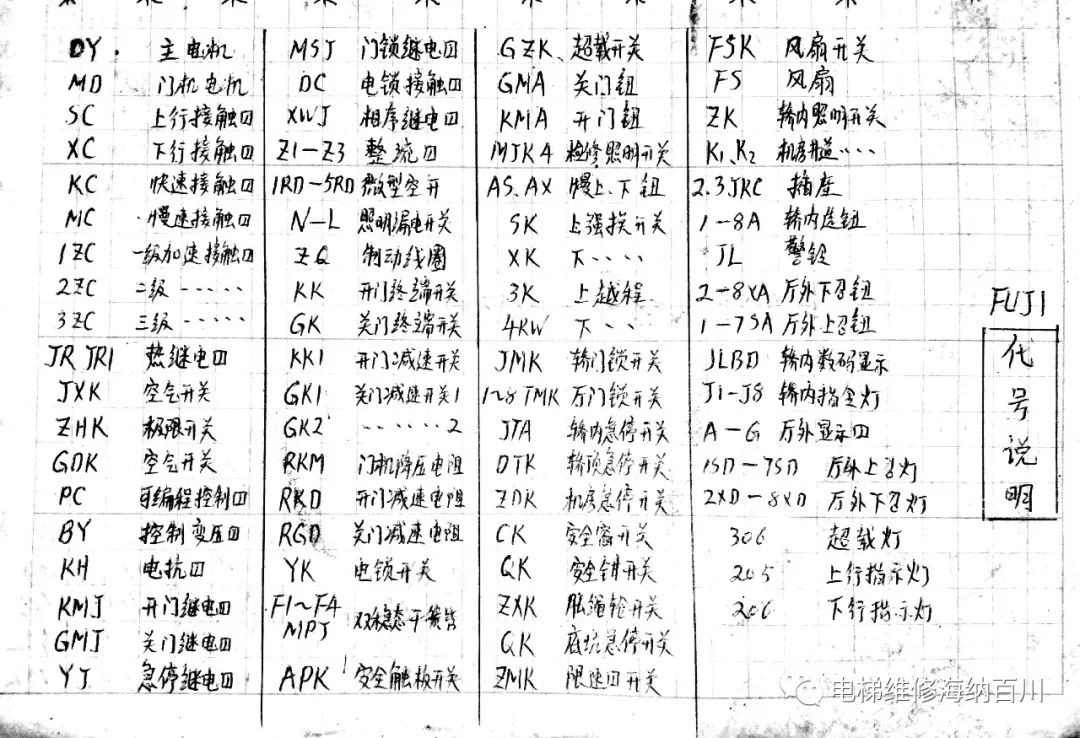 DY. 主电机 MSJ 门锁继电四 GZK 超载开关 FSK 风扇开关
MD 门机电机 DC 电锁接触四 GMA 关门钮 FS 风扇
SC 上行接触四 XWJ 相序继电四 KMA 开门钮 ZK 轿内照明开关
XC 下行接触四 Z1-Z3 整流四 MJKA 检修照明开关 K1、K2 机房井道····
KC 快速接触四 1RD-5RD 微型空开 AS、AX 慢上、下钮 2.3JRC 插座
MC 慢速接触四 N-L 照明漏电开关 SK 上强换开关 1-8A 轿内选钮
1ZC 一级加速接触四 ZQ 制动线圈 XK 下···· JL 警铃
2ZC 二级····· KK 开门终端开关 3K 上越程 2-8XA 厅外下召钮
3ZC 三级····· GK 关门终端开关 4KW 下·· 1-7SA 厅外上召钮
JR JR1 热继电四 KK1 开门减速开关 JMK 轿门锁开关 JLBD 轿内数码显示
JXK 空气开关 GK1 关门减速开关1 1~8TMK 厅门锁开关 J1-J8 轿内指令灯
ZHK 极限开关 GK2 ······2 JTA 轿内急停开关 A-G 厅外显示四
GDK 空气开关 RKM 门机降压电阻 DTK 轿顶急停开关 1SD-7SD 厅外上召灯
PC 可编程控制四 RKD 开门减速电阻 ZDK 机房急停开关 2XD-8XD 厅外下召灯
BY 控制变压四 RGD 关门减速电阻 CK 安全窗开关 306 超载灯
KH 电抗四 YK 电锁开关 QK 安全钳开关 205 上行指示灯
KMJ 开门继电四 F1~F4 MPJ 双稳态干簧管 ZXK 胀绳轮开关 206 下行指示灯
GMJ 关门继电四 QK 底坑急停开关
YJ 急停继电四 APK 安全触板开关 ZMK 限速四开关
FUJI
代号说明
电梯维修海纳百川